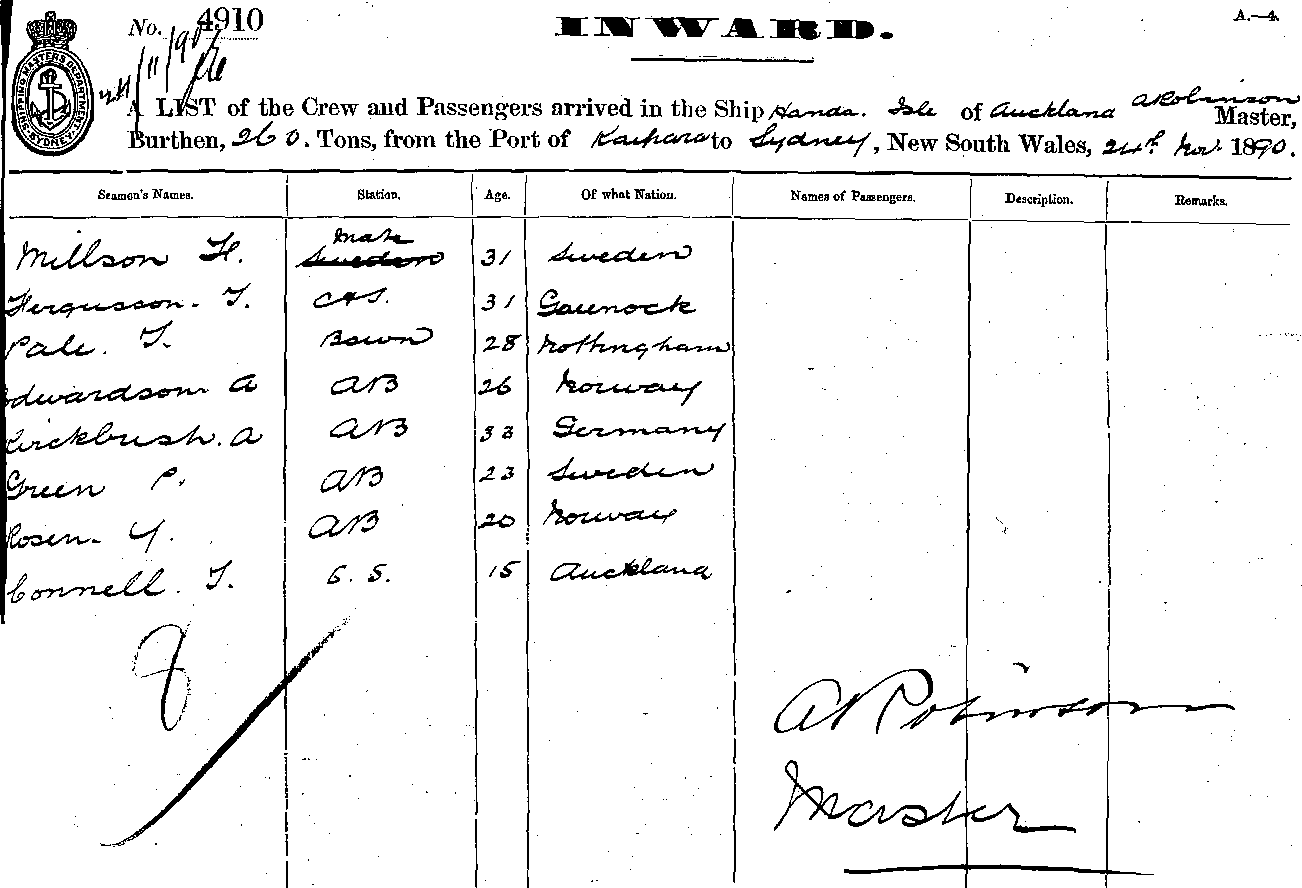 No. 4910
INWARD.
A.—4.
24/11/90
SHIPPING MASTER'S DEPARTMENT SYDNEY
A LIST of the Crew and Passengers arrived in the Ship Handa. Isle of Auckland A Robinson Master,
Burthen, 260. Tons, from the Port of to Sydney, New South Wales, 24th Nov. 1890.
Seamen's Names. Station. Age. Of what Nation. Names of Passengers. Description. Remarks.
Millson H. Mate Sweden 31 Sweden
Fergusson. T. C&S. 31 Gaurnock
Pale. T. Boswn 28 Nottingham
Edwardson A AB 26 Norway
A AB 33 Germany
Green P. AB 23 Sweden
Rosen. Y. AB 20 Norway
Connell. T. S. S. 15 Auckland
8
A Robinson
Master